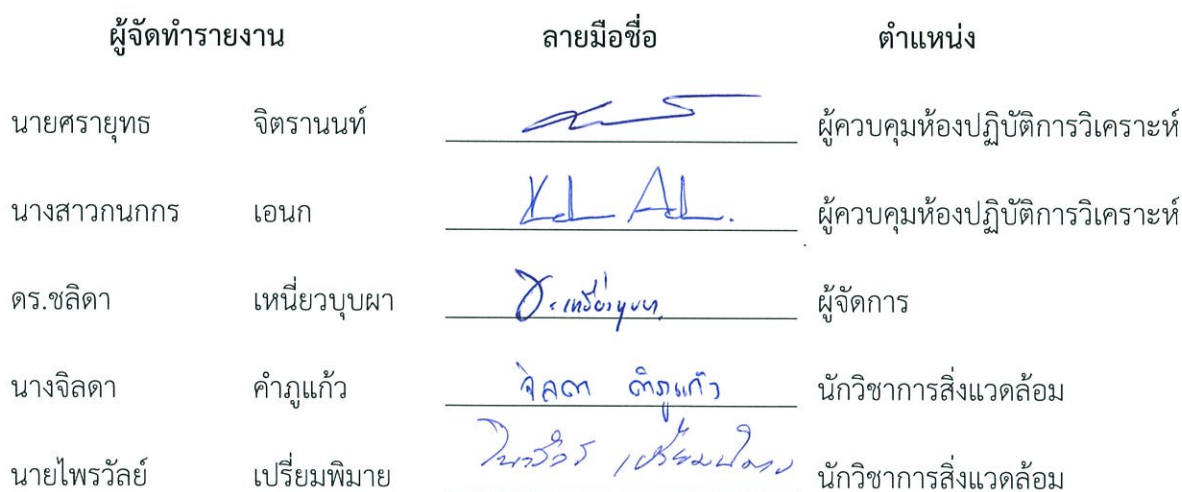 ผู้จัดทำรายงาน ลายมือชื่อ ตำแหน่ง
นายศรายุทธ จิตรานนท์ ผู้ควบคุมห้องปฏิบัติการวิเคราะห์
นางสาวกนกกร เอนก ผู้ควบคุมห้องปฏิบัติการวิเคราะห์
ดร.ชลิดา เหนี่ยวบุบผา ผู้จัดการ
นางจิลดา คำภูแก้ว จิลดา คำภูแก้ว นักวิชาการสิ่งแวดล้อม
นายไพรวัลย์ เปรี่ยมพิมาย นักวิชาการสิ่งแวดล้อม